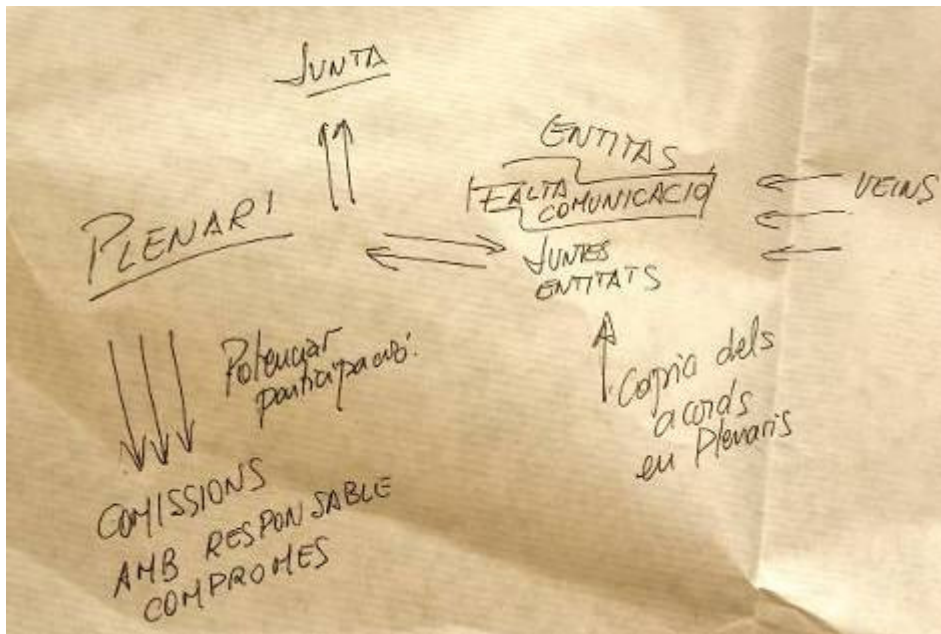 JUNTA
ENTITAS
FALTA
COMUNICACIO
VEINS
PLENARI
JUNTES
ENTITATS
Potenciar
participació.
Copia dels
acords
en Plenaris
COMISSIONS
AMB RESPONSABLE
COMPROMES